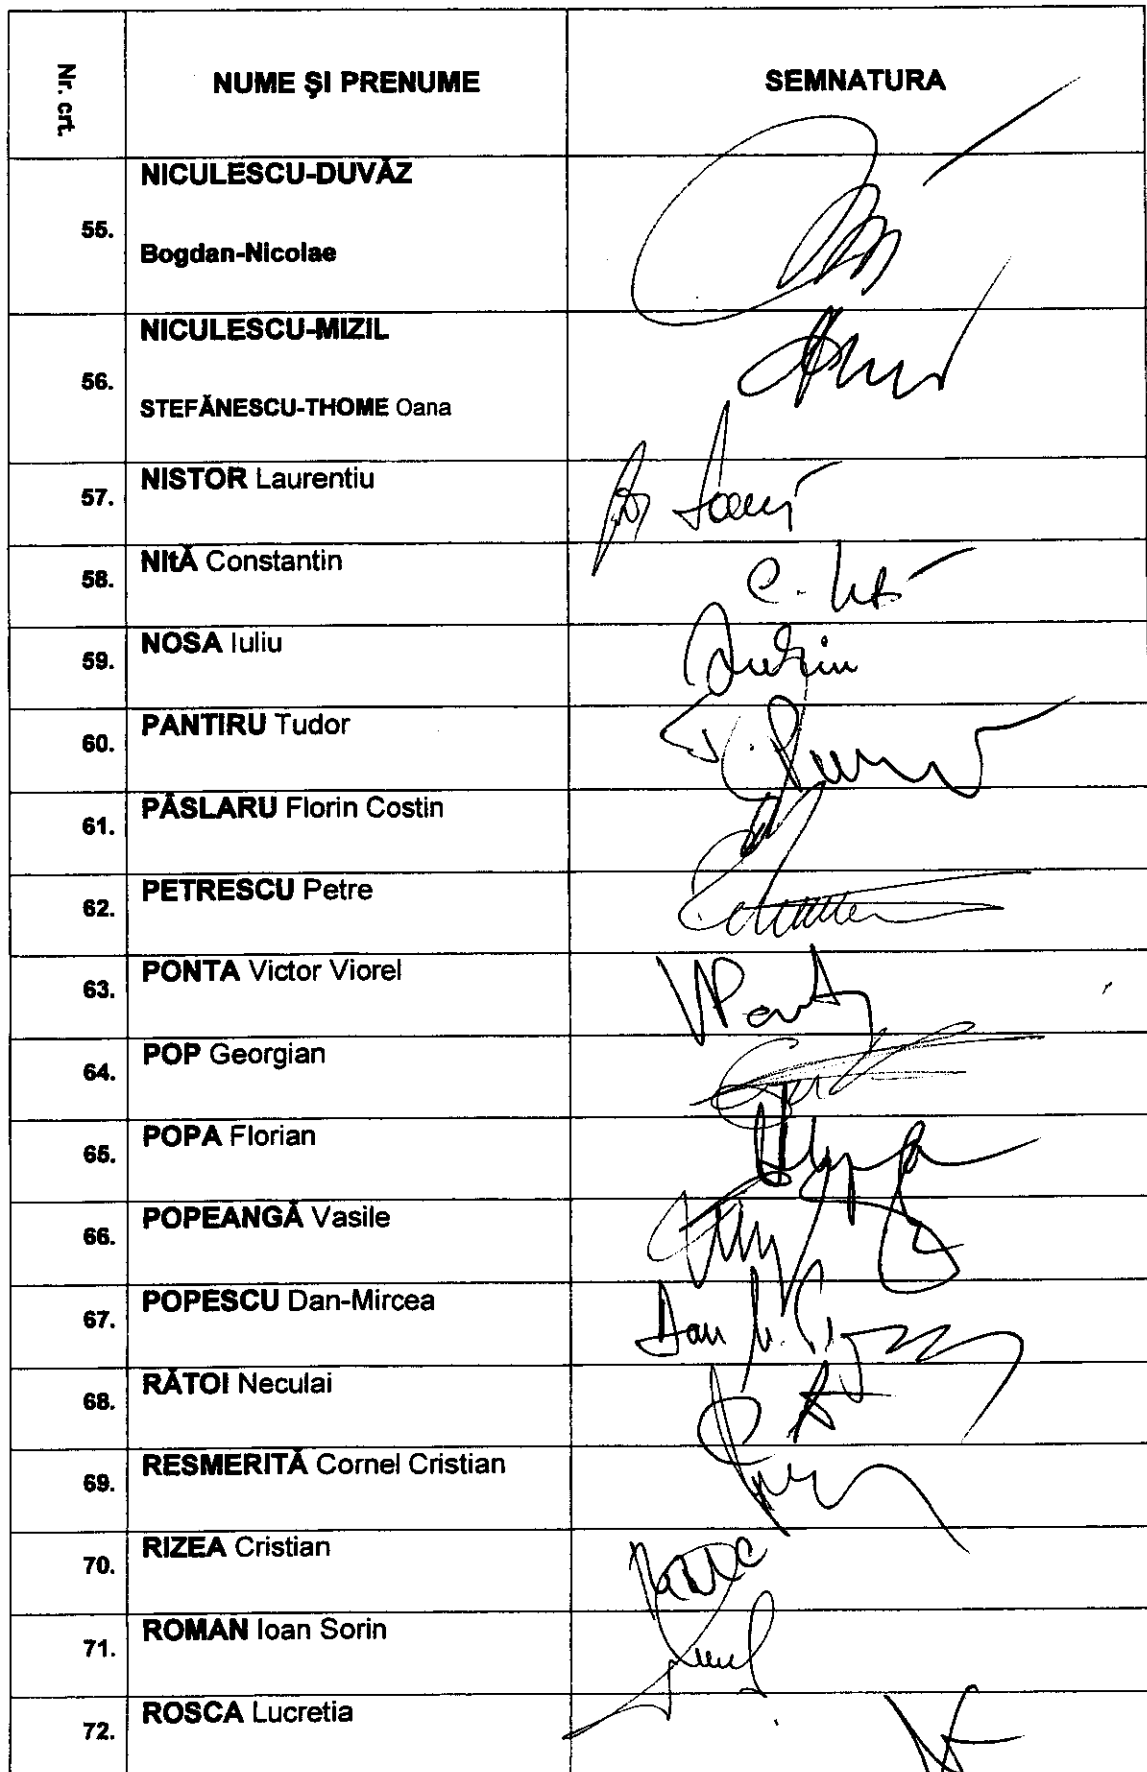 Nr. crt. NUME ŞI PRENUME SEMNATURA
NICULESCU-DUVĂZ
55.
Bogdan-Nicolae
NICULESCU-MIZIL
56.
STEFĂNESCU-THOME Oana
57. NISTOR Laurentiu
58. NItĂ Constantin
59. NOSA Iuliu
60. PANTIRU Tudor
61. PĂSLARU Florin Costin
62. PETRESCU Petre
63. PONTA Victor Viorel VPonta
64. POP Georgian
65. POPA Florian
66. POPEANGĂ Vasile
67. POPESCU Dan-Mircea Dan M. P
68. RĂTOI Neculai
69. RESMERITĂ Cornel Cristian
70. RIZEA Cristian
71. ROMAN Ioan Sorin
72. ROSCA Lucretia